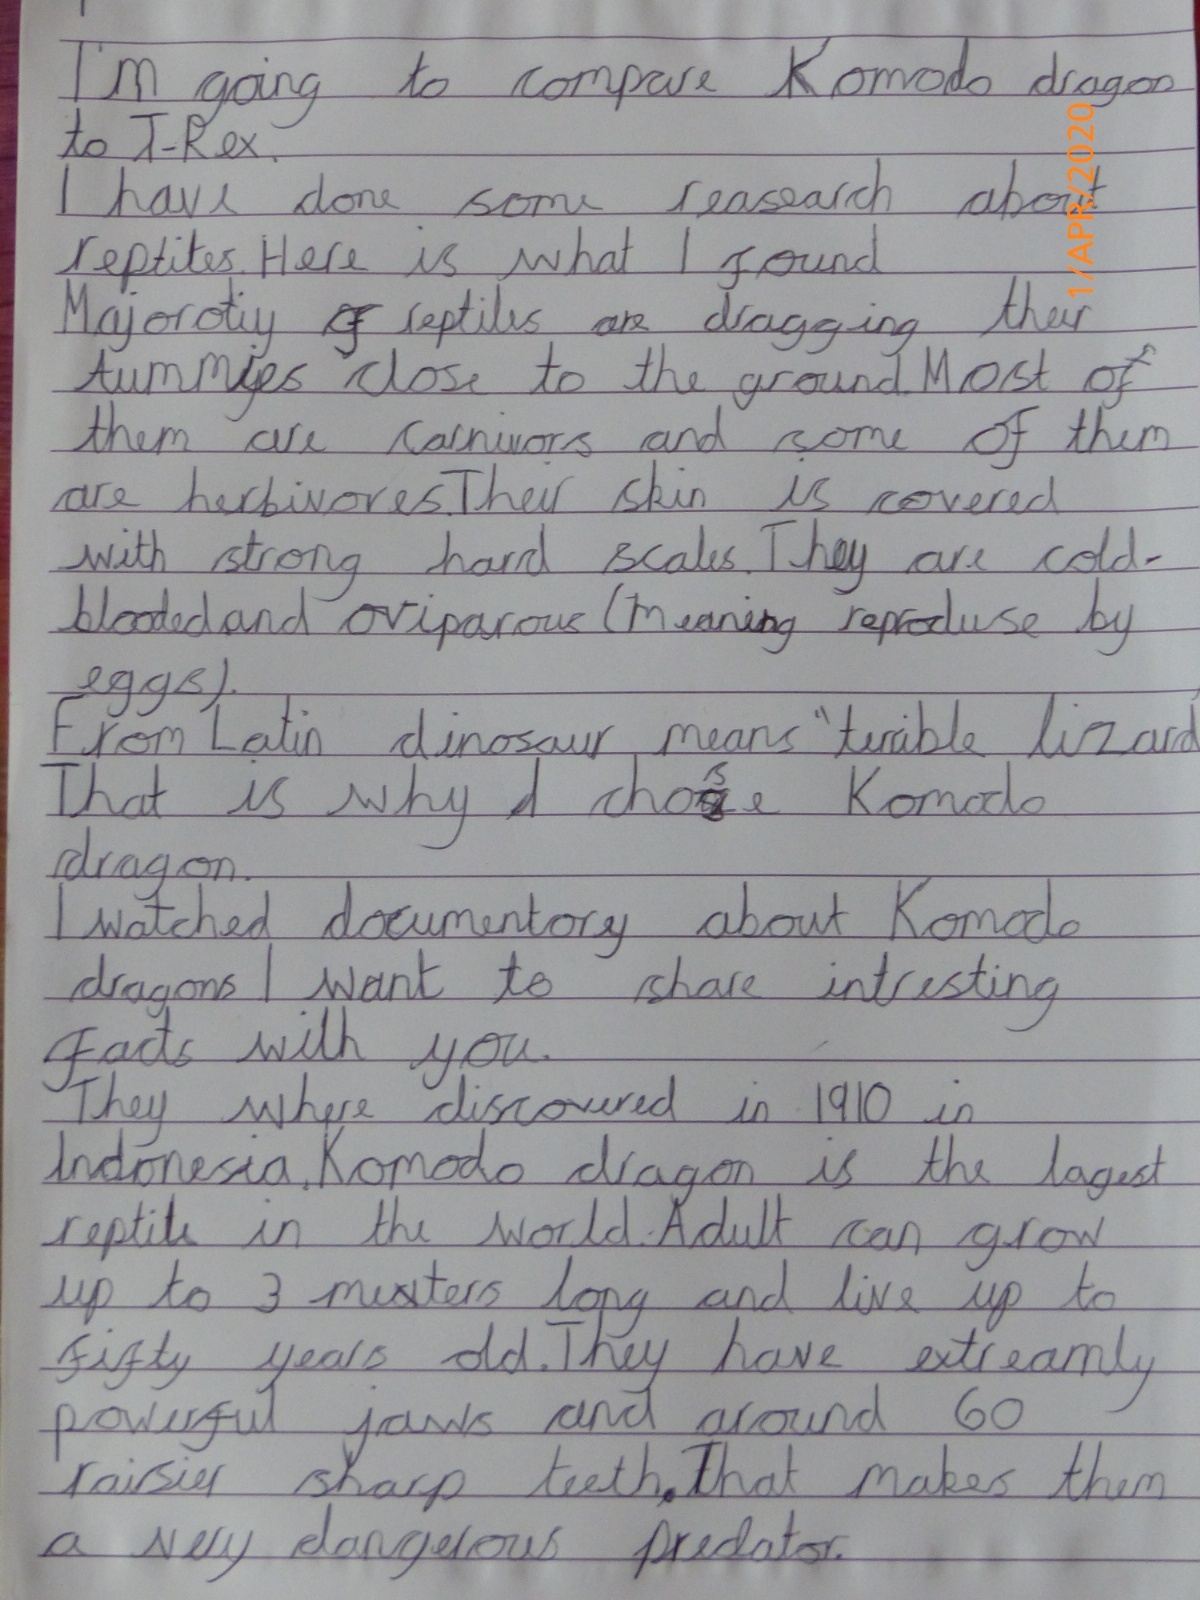 I'm going to compare Komodo dragon
to T-Rex.
I have done some reasearch about
reptites. Here is what I found
Majorotiy of reptiles are dragging their
tummies close to the ground. Most of
them are carnivors and some of them
are herbivores. Their skin is covered
with strong hard scales. They are cold-
blooded and oviparous (meaning reproduse by
eggs).
From Latin dinosaur means "terrible lizard
That is why I chose Komodo
dragon.
I watched documentory about Komodo
dragons I want to share intresting
facts with you.
They where discovered in 1910 in
Indonesia. Komodo dragon is the lagest
reptile in the world. Adult can grow
up to 3 meters long and live up to
fifty years old. They have extreamly
powerful jaws and around 60
raisier sharp teeth. That makes them
a very dangerous predator.
1/APR/2020